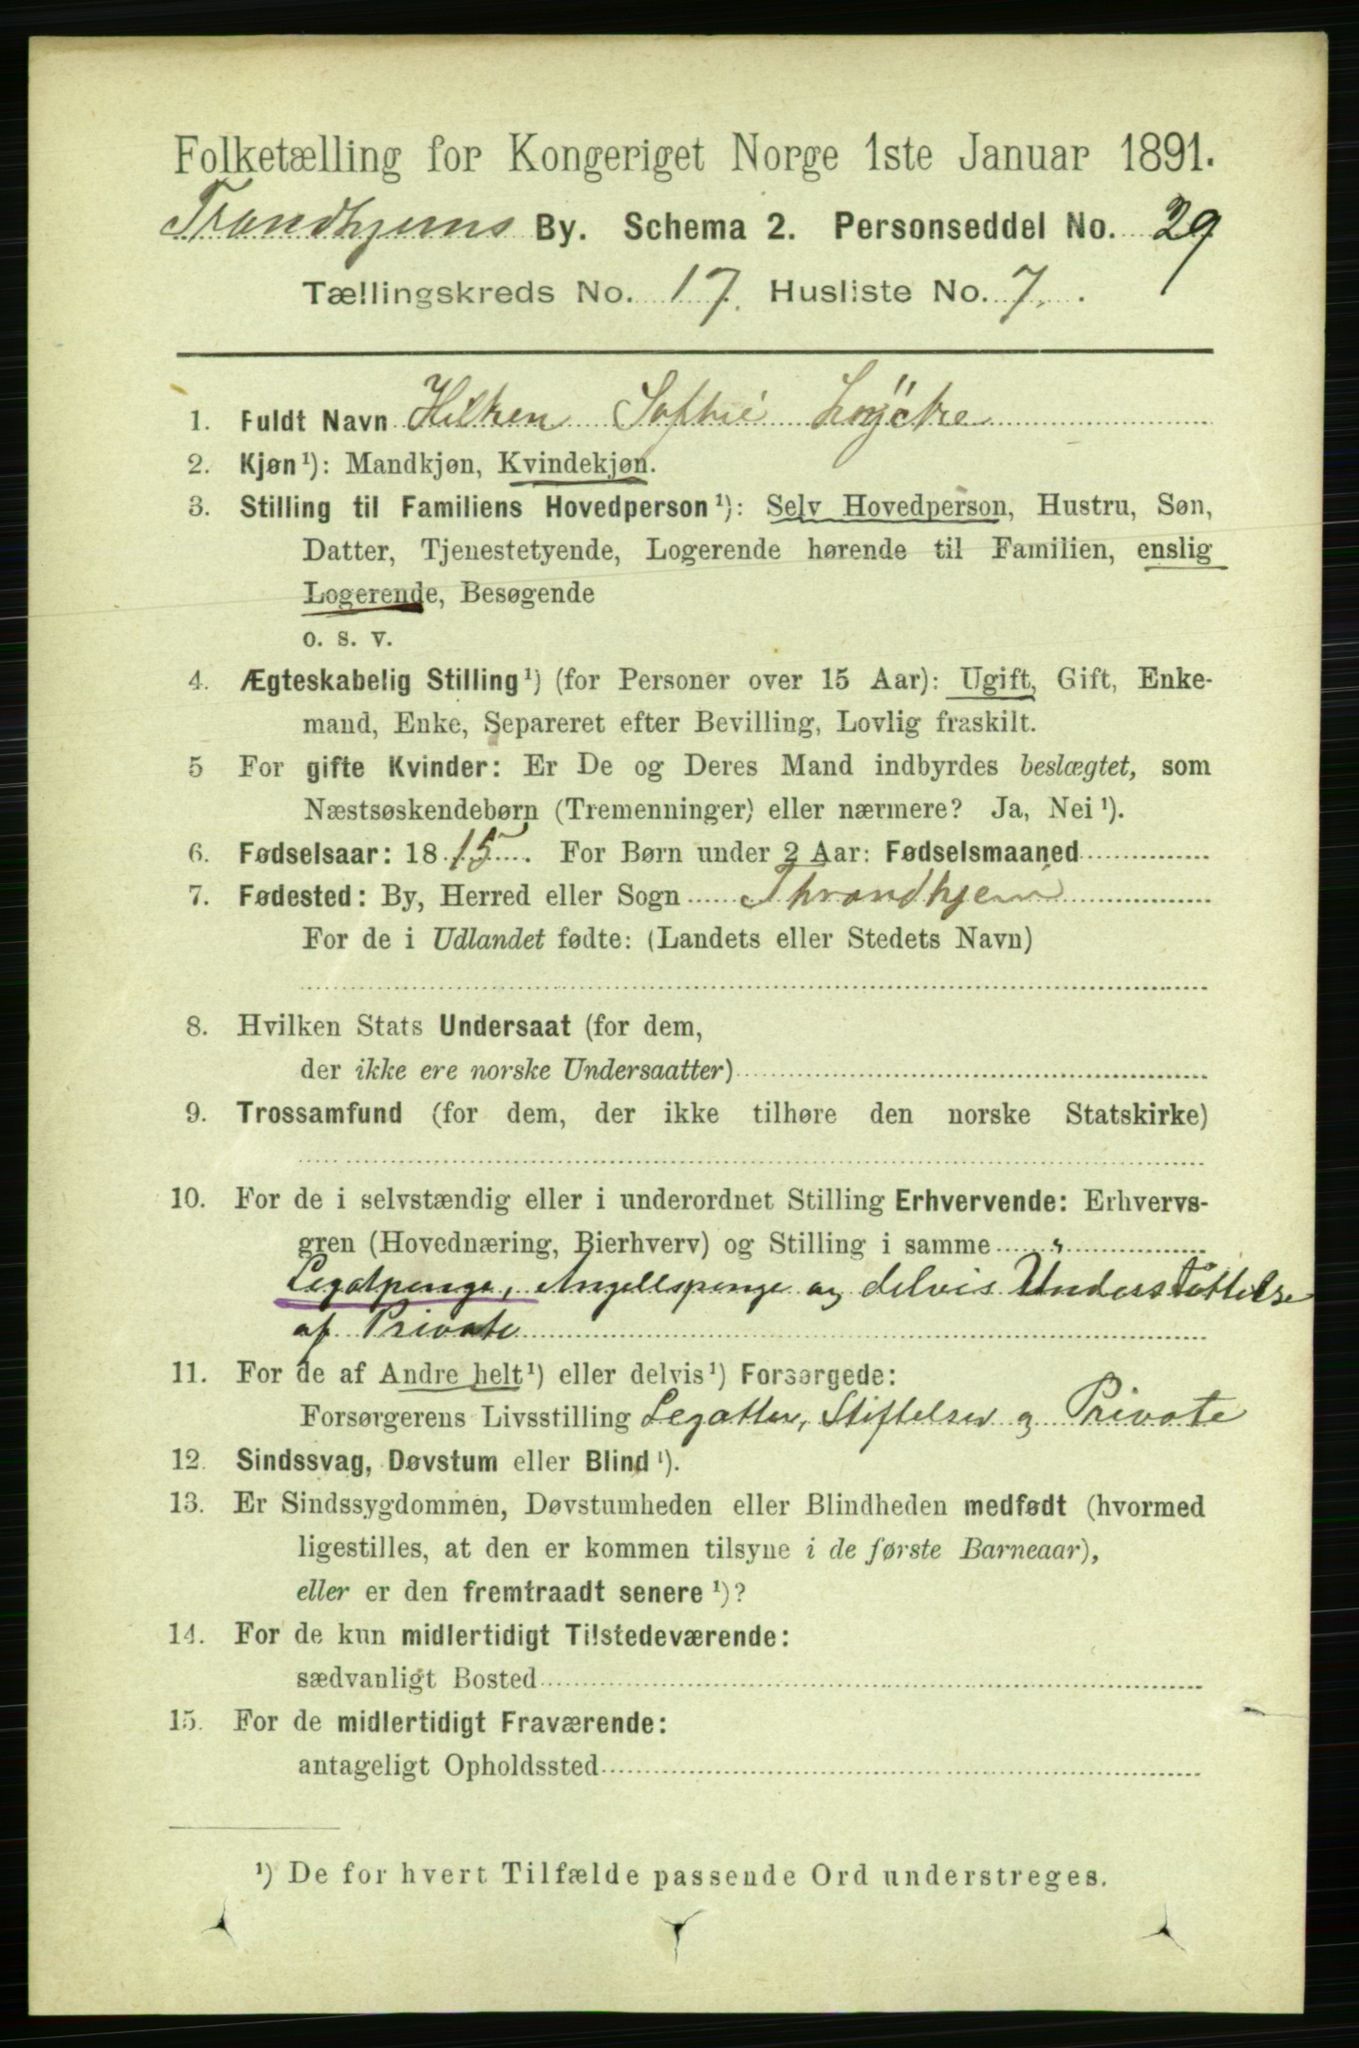 Folketælling for Kongeriget Norge 1ste Januar 1891.
Trondhjems By. Schema 2. Personseddel No. 29
Tællingskreds No. 17. Husliste No. 7.
1. Fuldt Navn Hilken Sofhie Loÿcke
2. Kjøn¹): Mandkjøn, Kvindekjøn.
3. Stilling til Familiens Hovedperson¹): Selv Hovedperson, Hustru, Søn,
Datter, Tjenestetyende, Logerende hørende til Familien, enslig
Logerende, Besøgende
o. s. v.
4. Ægteskabelig Stilling¹) (for Personer over 15 Aar): Ugift, Gift, Enke-
mand, Enke, Separeret efter Bevilling, Lovlig fraskilt.
5 For gifte Kvinder: Er De og Deres Mand indbyrdes beslægtet, som
Næstsøskendebørn (Tremenninger) eller nærmere? Ja, Nei¹).
6. Fødselsaar: 1815. For Børn under 2 Aar: Fødselsmaaned
7. Fødested: By, Herred eller Sogn Throndhjem
For de i Udlandet fødte: (Landets eller Stedets Navn)
8. Hvilken Stats Undersaat (for dem,
der ikke ere norske Undersaatter)
9. Trossamfund (for dem, der ikke tilhøre den norske Statskirke)
10. For de i selvstændig eller i underordnet Stilling Erhvervende: Erhvervs-
gren (Hovednæring, Bierhverv) og Stilling i samme "
Legatpenge, Angellspenge og delvis Understøttelse
af Private
11. For de af Andre helt¹) eller delvis¹) Forsørgede:
Forsørgerens Livsstilling Legatter, Stiftelser og Private
12. Sindssvag, Døvstum eller Blind¹).
13. Er Sindssygdommen, Døvstumheden eller Blindheden medfødt (hvormed
ligestilles, at den er kommen tilsyne i de første Barneaar),
eller er den fremtraadt senere¹)?
14. For de kun midlertidigt Tilstedeværende:
sædvanligt Bosted
15. For de midlertidigt Fraværende:
antageligt Opholdssted
¹) De for hvert Tilfælde passende Ord understreges.